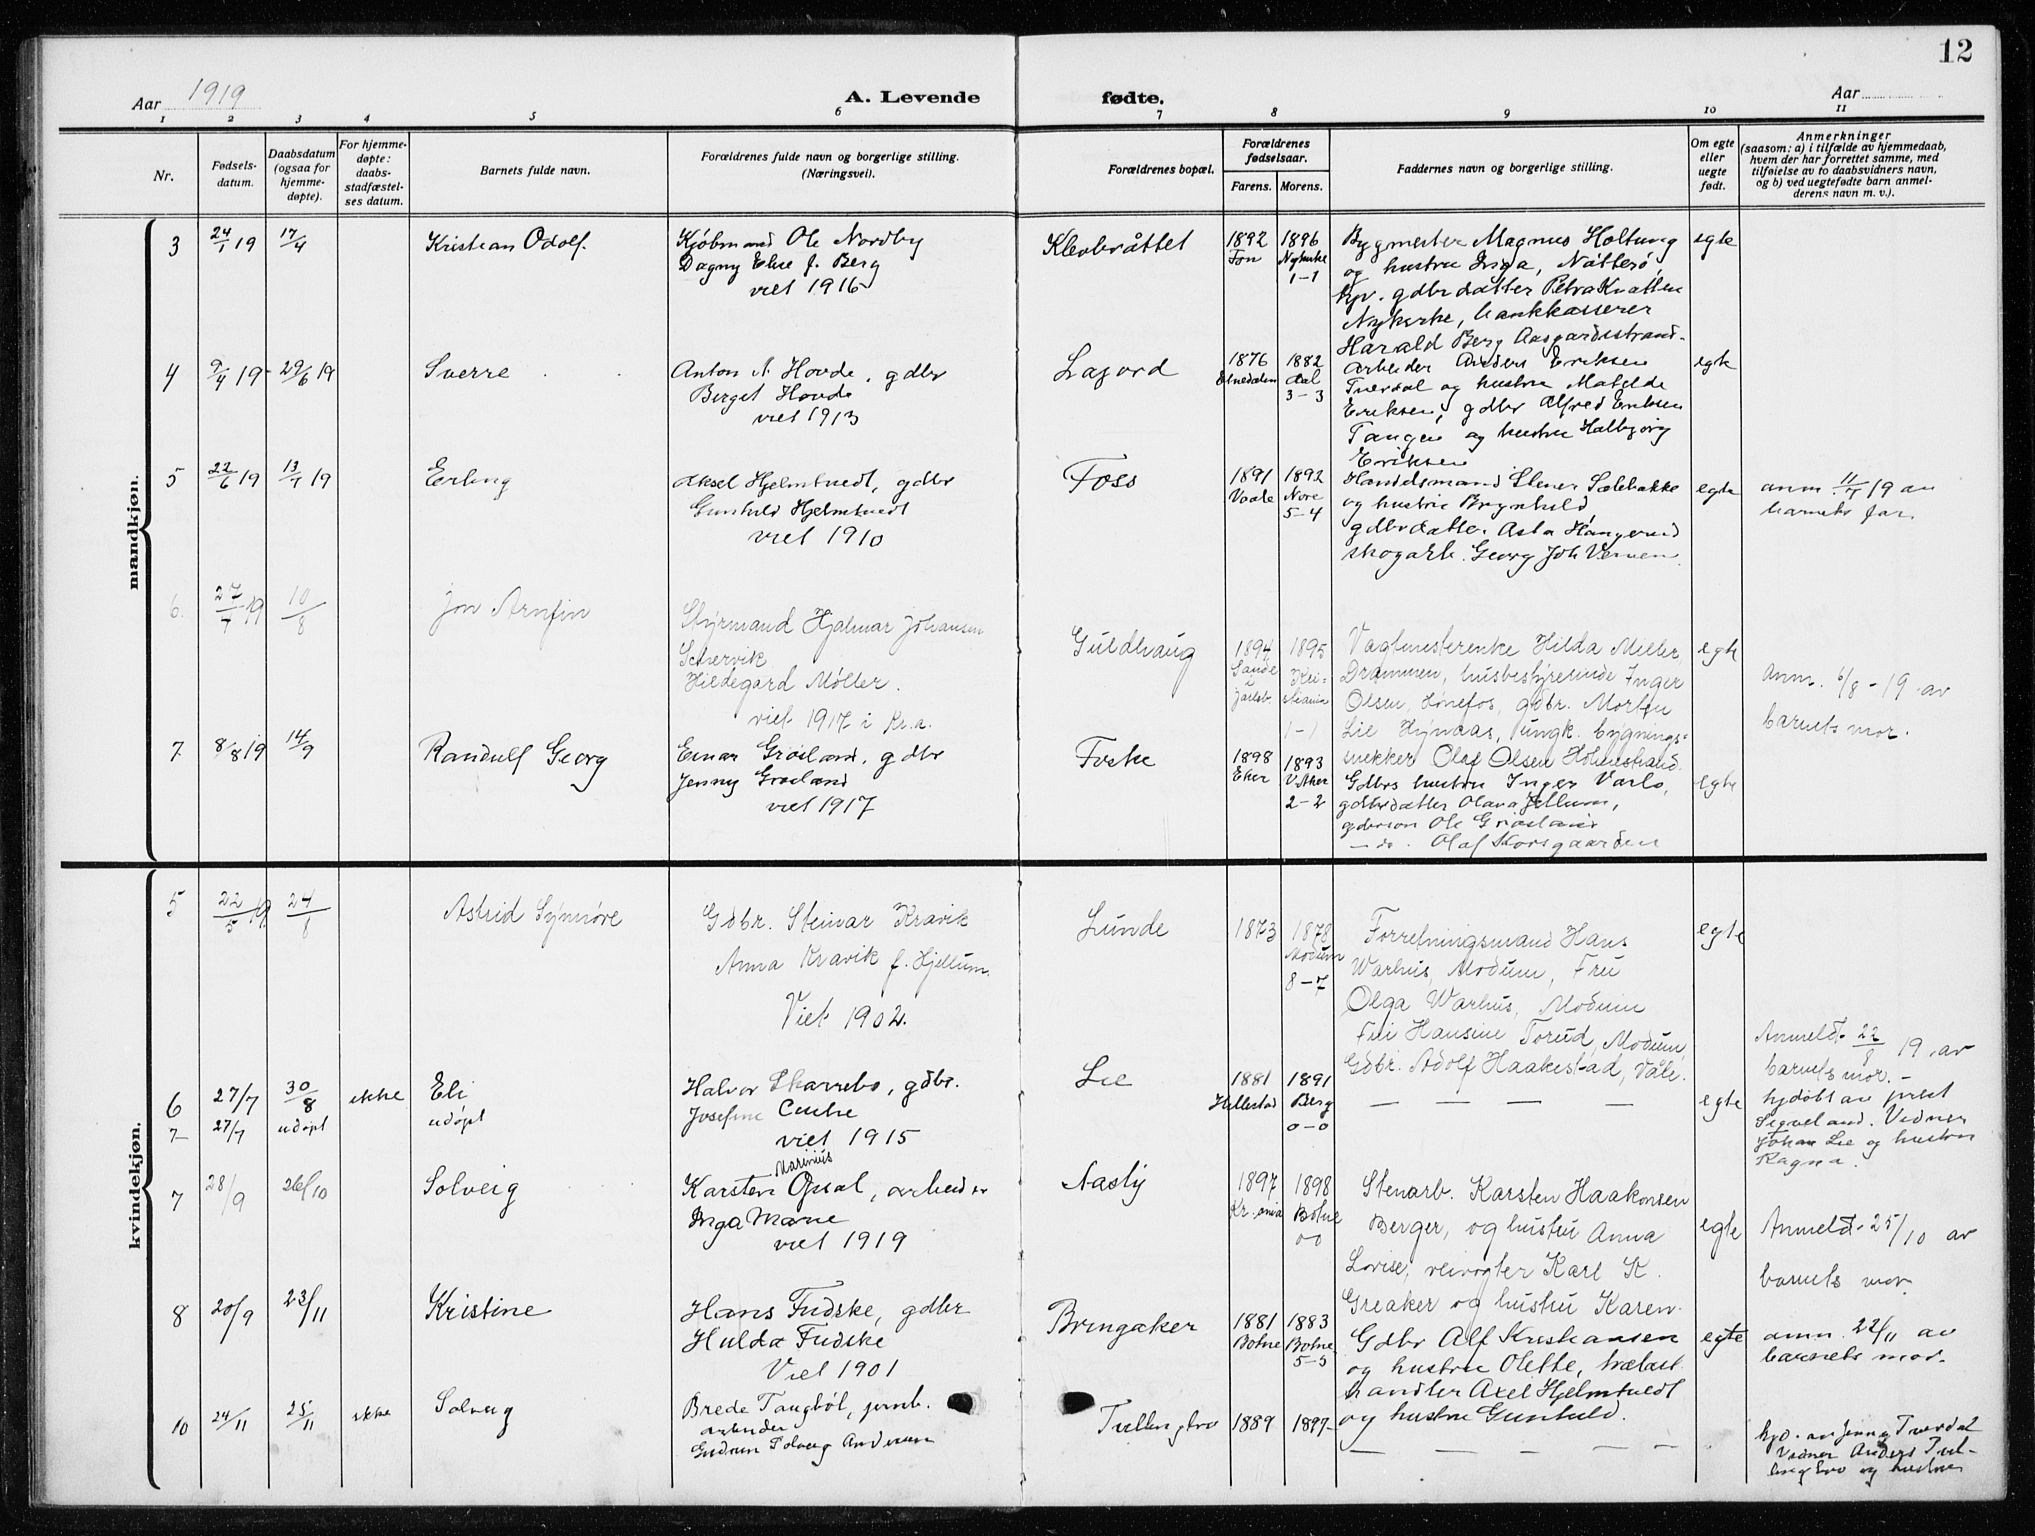 12
Aar 1919
A. Levende fødte.
Aar
1 2 3 4 5 6 7 8 9 10 11
Nr.
Fødsels-
datum.
Daabsdatum
(ogsaa for
hjemme-
døpte).
For hjemme-
døpte:
daabs-
stadfæstel-
ses datum.
Barnets fulde navn.
Forældrenes fulde navn og borgerlige stilling.
(Næringsvei).
Forældrenes bopæl.
Forældrenes
fødselsaar.
Farens. Morens.
Faddernes navn og borgerlige stilling.
Om egte
eller
uegte
født.
Anmerkninger
(saasom: a) i tilfælde av hjemmedaab,
hvem der har forrettet samme, med
tilføielse av to daabsvidners navn,
og b) ved uegtefødte barn anmel-
derens navn m. v.).
mandkjøn.
3 24/1 19 17/4 Kristian Odolf.
Kjøbmand Ole Nordby
Dagny Elise f. Berg
viet 1916
Klevbråttet
1892 1896
Fon Nykirke
1-1
Bygmester Magnus Holtung
og hustru Inga, Nøtterø,
gdbr datter Petra
Nykirke, bankkasserer
Harald Berg Aasgaardsstrand.
egte
4 9/4 19 29/6 19 Sverre
Anton A. Hovde, gdbr
Berget Hovde
viet 1913
Lagord
1876 1882
Etnedalen Aal
3-3
Arbeider Anders Eriksen
Tverdal og hustru Matilde
Eriksen, gdbr Alfred Eriksen
Tangen og hustru Halbjørg
Eriksen
egte
5 22/6 19 13/7 19 Erling
Aksel Hjelmtvedt, gdbr
Gunhild Hjelmtvedt
viet 1910
Foss
1891 1892
Vaale Nore
5-4
Handelsmand Stener Sælebakke
og hustru Brynhild
gdbrdatter Asta
skogarb. Georg Joh
egte
anm. 11/7 19 av
barnets far.
6. 27/7 19 10/8 Jon Arnfin
Styrmand Hjalmar Johansen
Schervik
Hildegard Møller.
viet 1917 i Kr.a.
Guldhaug
1894 1895
Sande Kri-
i Jarlsb. stiania
1-1
Vagtmesterenke Hilda Miller,
Drammen, husbestyrerinde Inger
Olsen, Hønefos, gdbr. Morten
Lie Høynaas, ungk. bygnings-
snekker Olaf Olsen Holmestrand.
egte
Anm. 6/8 - 19 av
barnets mor.
7. 8/8 19 14/9 Randulf Georg
Einar Grøsland, gdbr
Jenny Grøsland
viet 1917
Foske
1898 1893
Eker V. Aker
2-2
Gdbrs hustru Inger Varlo,
gdbrdatter Olava Jellum,
gdbrson Ole Grøsland
— do. Olaf Korsgaarden
egte
kvindekjøn.
5 22/5 19 24/8 Astrid Synnøve
Gdbr. Steinar Kravik
Anna Kravik f. Hjellum.
Viet 1902.
Lunde
1873 1878
Modum
8-7
Forretningsmand Hans
Warhus, Modum, Fru
Olga Warhus, Modum
Fru Hansine Torud, Modum,
Gdbr. Adolf Haakestad, Våle.
egte
Anmeldt 22/8 19. av
barnets mor. -
6 27/7 30/8 ikke Eli
7- 27/7 udøpt udøpt
Halvor Skarrebo, gdbr.
Josefine
viet 1915
Lie
1881 1891
Hillestad Berg
0-0
— — — —
egte
hjdøbt av prest
Sigveland. Vidner
Johan Lie og hustru
Ragna.
7 28/9 26/10 Solveig
Marinius
Karsten Opsal, arbeider
Inga Marie
viet 1919
Aasly
1897 1898
Kr.ania Botne
00
Stenarb. Karsten Haakonsen
Berger, og hustru Anna
Lovise, veivogter Karl K.
Greaker og hustru Karen.
egte
Anmeldt 25/10 av
barnets mor.
8 20/9 23/11 Kristine
Hans Fudske, gdbr
Hulda Fudske
Viet 1901
Bringaker
1881 1883
Botne Botne
5-5
Gdbr Alf Kristiansen
og hustru Olette, trælast
handler Axel Hjelmtvedt
og hustru Gunhild.
egte
anm. 22/11 av
barnets mor.
10 24/11 25/11 ikke Solveig
Brede Tangbøl, jernb.
arbeider
Gudrun Solveig Andersen
Tvillingbro
1889 1897-
— — — —
hjd. av Jenny Tverdal
Vidner Anders Tvil-
lingbro og hustru